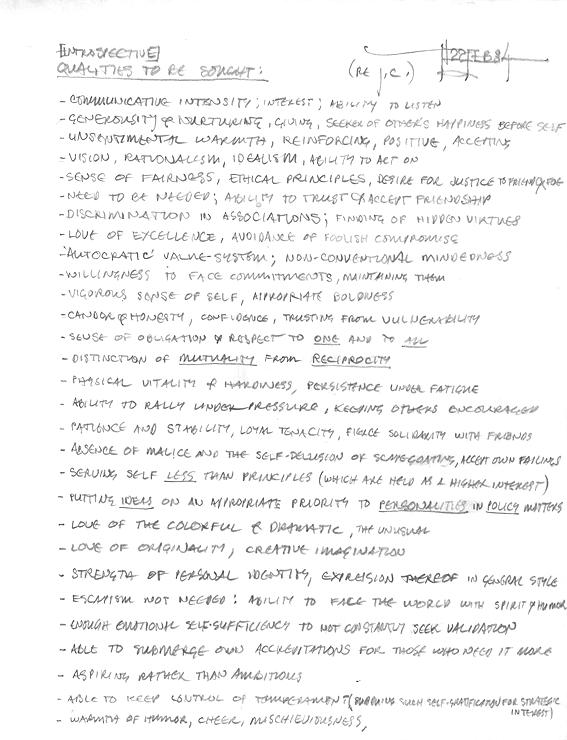 [INTROSPECTIVE]
QUALITIES TO BE SOUGHT: (RE J.C.) 22 FEB 84
- COMMUNICATIVE INTENSITY; INTEREST; ABILITY TO LISTEN
- GENEROSITY & NURTURING, GIVING, SEEKER OF OTHER'S HAPPINESS BEFORE SELF
- UNSENTIMENTAL WARMTH, REINFORCING, POSITIVE, ACCEPTING
- VISION, RATIONALISM, IDEALISM, ABILITY TO ACT ON
- SENSE OF FAIRNESS, ETHICAL PRINCIPLES, DESIRE FOR JUSTICE TO FRIEND & FOE
- NEED TO BE NEEDED; ABILITY TO TRUST & ACCEPT FRIENDSHIP
- DISCRIMINATION IN ASSOCIATIONS; FINDING OF HIDDEN VIRTUES
- LOVE OF EXCELLENCE, AVOIDANCE OF FOOLISH COMPROMISE
- 'AUTOCRATIC' VALUE-SYSTEM; NON-CONVENTIONAL MINDEDNESS
- WILLINGNESS TO FACE COMMITMENTS, MAINTAINING THEM
- VIGOROUS SENSE OF SELF, APPROPRIATE BOLDNESS
- CANDOR & HONESTY, CONFIDENCE, TRUSTING FROM VULNERABILITY
- SENSE OF OBLIGATION & RESPECT TO ONE AND TO ALL
- DISTINCTION OF MUTUALITY FROM RECIPROCITY
- PHYSICAL VITALITY & HARDINESS, PERSISTENCE UNDER FATIGUE
- ABILITY TO RALLY UNDER PRESSURE, KEEPING OTHERS ENCOURAGED
- PATIENCE AND STABILITY, LOYAL TENACITY, FIERCE SOLIDARITY WITH FRIENDS
- ABSENCE OF MALICE AND THE SELF-DELUSION OF SCAPEGOATING, ACCEPT OWN FAILINGS
- SERVING SELF LESS THAN PRINCIPLES (WHICH ARE HELD AS A HIGHER INTEREST)
- PUTTING IDEAS ON AN APPROPRIATE PRIORITY TO PERSONALITIES IN POLICY MATTERS
- LOVE OF THE COLORFUL & DRAMATIC, THE UNUSUAL
- LOVE OF ORIGINALITY, CREATIVE IMAGINATION
- STRENGTH OF PERSONAL IDENTITY, EXPRESSION THEREOF IN GENERAL STYLE
- ESCAPISM NOT NEEDED: ABILITY TO FACE THE WORLD WITH SPIRIT & HUMOR
- ENOUGH EMOTIONAL SELF-SUFFICIENCY TO NOT CONSTANTLY SEEK VALIDATION
- ABLE TO SUBMERGE OWN ACCREDITATIONS FOR THOSE WHO NEED IT MORE
- ASPIRING RATHER THAN AMBITIOUS
- ABLE TO KEEP CONTROL OF TEMPERAMENT ( SUCH SELF-GRATIFICATION FOR STRATEGIC
INTEREST)
- WARMTH OF HUMOR, CHEER, MISCHIEVIOUSNESS,